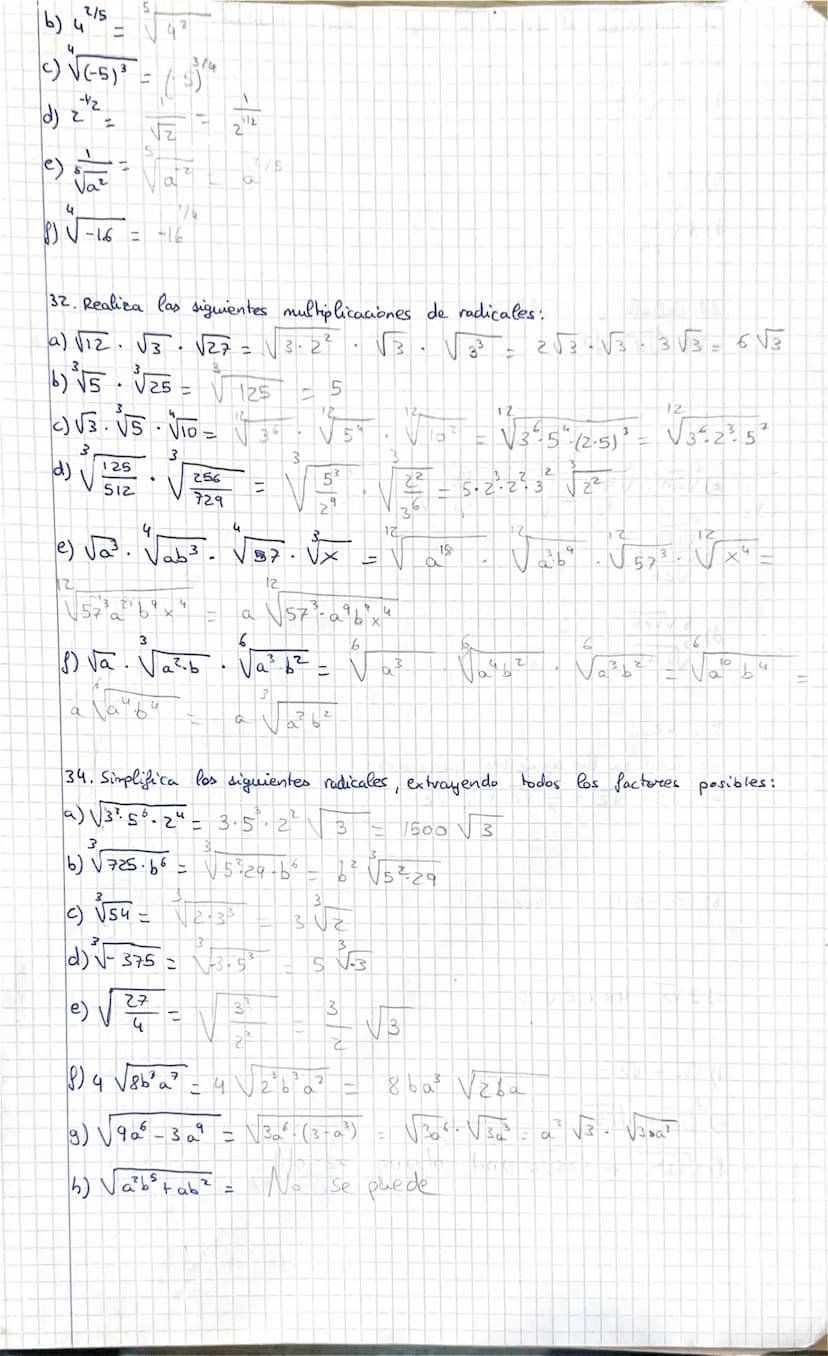 b) 4^{2/5} = ⁵√4²
c) ⁴√(-5)³ = (-5)^{3/4}
d) 2^{-1/2} = 1/√2 = 1/2^{1/2}
e) 1/⁵√a² = ⁵√a^{-2} = a^{2/5}
f) ⁴√-16 = -16^{1/4}
32. Realiza las siguientes multiplicaciones de radicales:
a) √12 · √3 · √27 = √3·2² · √3 · √3³ = 2√3 · √3 · 3√3 = 6√3
b) ³√5 · ³√25 = ³√125 = 5
c) √3 · ³√5 · ⁴√10 = ¹²√3⁶ · ¹²√5⁴ · ¹²√10³ = ¹²√3⁶·5⁴·(2·5)³ = ¹²√3⁶·2³·5⁷
d) ³√125/512 · ³√256/729 = ³√5³/2⁹ · ³√2²/3⁶ = 5·2³·2²·3² ³√2²
e) √a³ · ⁴√ab³ · ⁴√57 · ³√x = ¹²√a¹⁸ · ¹²√a³b⁹ · ¹²√57³ · ¹²√x⁴ =
¹²√57³a²¹b⁹x⁴ = a ¹²√57³·a⁹b⁹x⁴
f) √a · ³√a²·b · ⁶√a³·b² = ⁶√a³ · ⁶√a⁴b² · ⁶√a³b² = ⁶√a¹⁰b⁴ =
a ⁶√a⁴b⁴ = a ³√a²b²
34. Simplifica los siguientes radicales, extrayendo todos los factores posibles:
a) √3³·5⁶·2⁴ = 3·5³·2² √3 = 1500√3
b) ³√725·b⁶ = ³√5²·29·b⁶ = b² ³√5²·29
c) ³√54 = ³√2·3³ = 3 ³√2
d) ³√-375 = ³√-3·5³ = 5 ³√-3
e) √27/4 = √3³/2² = 3/2 √3
f) 4√8b³a⁷ = 4√2³b³a⁷ = 8ba³ √2ba
g) √9a⁶-3a⁹ = √3a⁶·(3-a³) = √3a⁶ · √3a³ = a³ √3 · √3-a³
h) √a²b⁵+ab² = No se puede